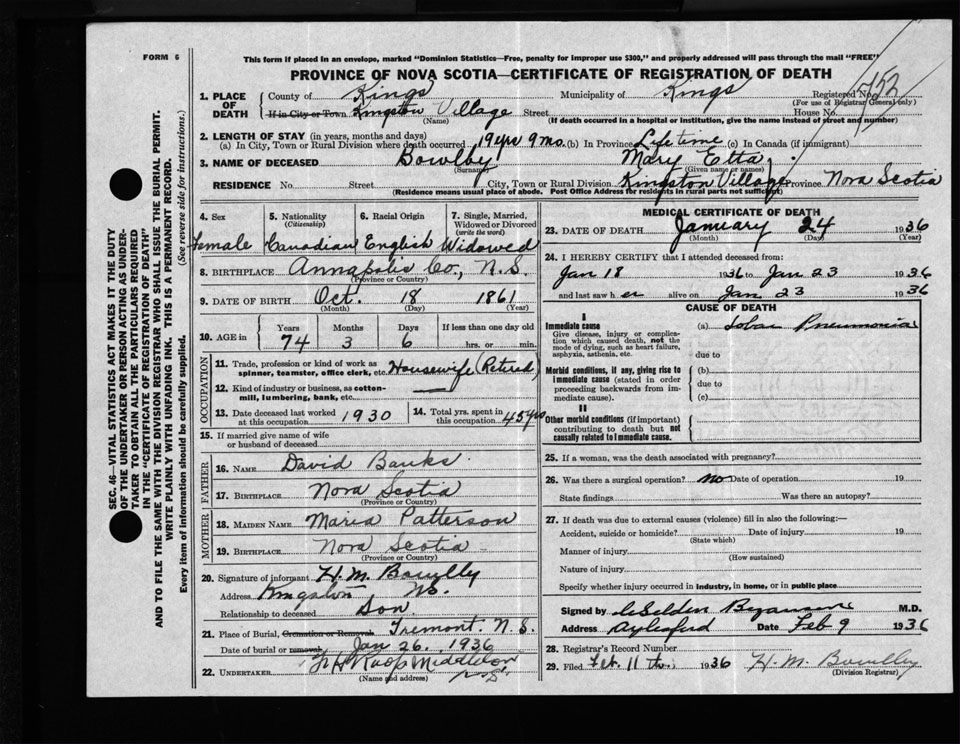 FORM 6
This form if placed in an envelope, marked "Dominion Statistics—Free, penalty for improper use $300," and properly addressed will pass through the mail "FREE"
PROVINCE OF NOVA SCOTIA—CERTIFICATE OF REGISTRATION OF DEATH
1. PLACE OF DEATH County of Kings Municipality of Kings Registered No. 152
(For use of Registrar General only)
If in City or Town Kingston Village Street House No.
(Name) (If death occurred in a hospital or institution, give the name instead of street and number)
2. LENGTH OF STAY (in years, months and days)
(a) In City, Town or Rural Division where death occurred 19 yrs 9 mo. (b) In Province Lifetime (c) In Canada (if immigrant)
3. NAME OF DECEASED Bowlby Mary Etta
(Surname) (Given name or names)
RESIDENCE No. Street City, Town or Rural Division Kingston Village Province Nova Scotia
(Residence means usual place of abode. Post Office Address for residents in rural parts not sufficient)
4. Sex Female
5. Nationality (Citizenship) Canadian
6. Racial Origin English
7. Single, Married, Widowed or Divorced (write the word) Widowed
8. BIRTHPLACE Annapolis Co., N.S.
(Province or Country)
9. DATE OF BIRTH Oct. 18 1861
(Month) (Day) (Year)
10. AGE in Years Months Days If less than one day old
74 3 6 hrs. or min.
OCCUPATION
11. Trade, profession or kind of work as spinner, teamster, office clerk, etc. Housewife (Retired)
12. Kind of industry or business, as cotton-mill, lumbering, bank, etc. —
13. Date deceased last worked at this occupation 1930
14. Total yrs. spent in this occupation 45 yrs
15. If married give name of wife or husband of deceased
FATHER
16. NAME David Banks
17. BIRTHPLACE Nova Scotia
(Province or Country)
MOTHER
18. MAIDEN NAME Maria Patterson
19. BIRTHPLACE Nova Scotia
(Province or Country)
20. Signature of informant H. M. Bowlby
Address Kingston N.S.
Relationship to deceased Son
21. Place of Burial, Cremation or Removal Tremont. N.S.
Date of burial or removal Jan 26. 1936
22. UNDERTAKER Middleton N.S.
(Name and address)
MEDICAL CERTIFICATE OF DEATH
23. DATE OF DEATH January 24 1936
(Month) (Day) (Year)
24. I HEREBY CERTIFY that I attended deceased from:
Jan 18 1936 to Jan 23 1936
and last saw her alive on Jan 23 1936
CAUSE OF DEATH
I
Immediate cause (a) Lobar Pneumonia
Give disease, injury or complication which caused death, not the mode of dying, such as heart failure, asphyxia, asthenia, etc.
due to
Morbid conditions, if any, giving rise to immediate cause (stated in order proceeding backwards from immediate cause).
(b)
due to
(c)
II
Other morbid conditions (if important) contributing to death but not causally related to immediate cause.
25. If a woman, was the death associated with pregnancy?
26. Was there a surgical operation? no Date of operation 19
State findings Was there an autopsy?
27. If death was due to external causes (violence) fill in also the following:—
Accident, suicide or homicide? Date of injury 19
(State which)
Manner of injury
(How sustained)
Nature of injury
Specify whether injury occurred in industry, in home, or in public place
Signed by M.D.
Address Aylesford Date Feb 9 1936
28. Registrar's Record Number
29. Filed Feb. 11 th 1936 H. M. Bowlby
(Division Registrar)
SEC. 46—VITAL STATISTICS ACT MAKES IT THE DUTY
OF THE UNDERTAKER OR PERSON ACTING AS UNDER-
TAKER TO OBTAIN ALL THE PARTICULARS REQUIRED
IN THE "CERTIFICATE OF REGISTRATION OF DEATH"
AND TO FILE THE SAME WITH THE DIVISION REGISTRAR WHO SHALL ISSUE THE BURIAL PERMIT.
WRITE PLAINLY WITH UNFADING INK. THIS IS A PERMANENT RECORD.
Every item of information should be carefully supplied. (See reverse side for instructions.)